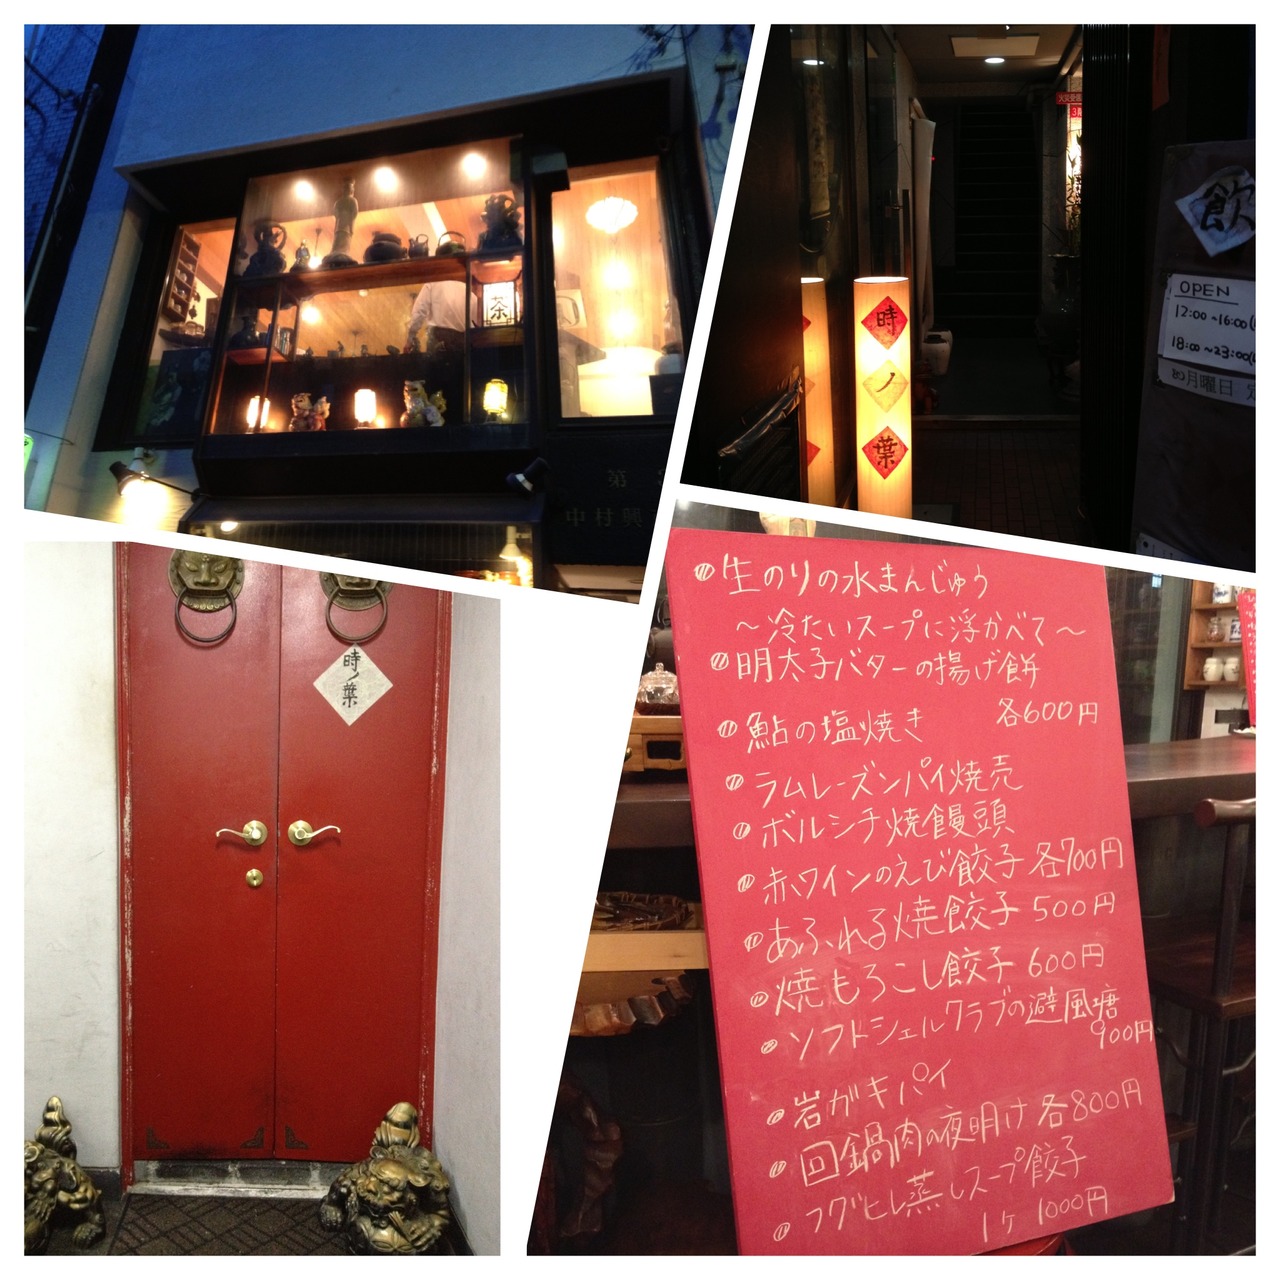 茶
第
中村興
時ノ葉
飲
OPEN
12:00~16:00
18:00~23:00
月曜日 定
時ノ葉
生のりの水まんじゅう
～冷たいスープに浮かべて～
明太子バターの揚げ餅
各600円
鮎の塩焼き
ラムレーズンパイ焼売
ボルシチ焼饅頭
赤ワインのえび餃子 各700円
あふれる焼餃子 500円
焼もろこし餃子 600円
ソフトシェルクラブの避風塘
900円
岩ガキパイ
回鍋肉の夜明け 各800円
フグヒレ蒸しスープ餃子
1ケ 1000円